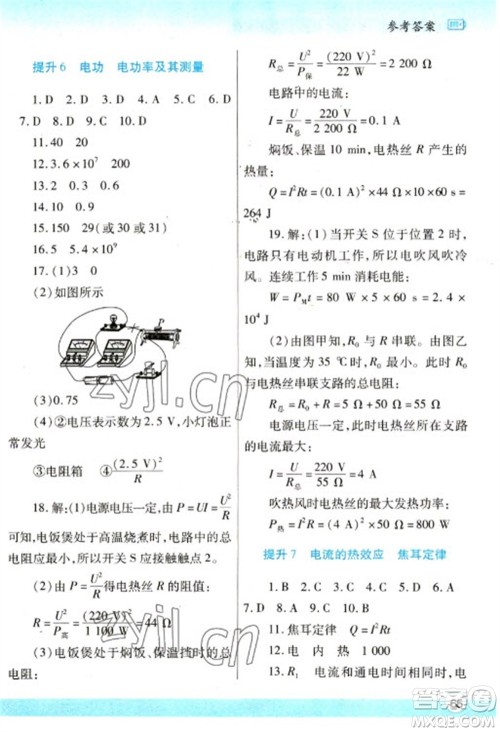 参考答案
提升6 电功 电功率及其测量
1. D 2. D 3. D 4. A 5. D 6. C
7. D 8. D 9. D 10. D
11. 40 20
12. 3.6×10⁷ 200
15. 150 29(或30或31)
16. 5 5.4×10⁹
17. (1)3 0
(2)如图所示
(3)0.75
(4)②电压表示数为2.5 V,小灯泡正
常发光
③电阻箱 (2.5 V)²/R
18. 解:(1)电源电压一定,由P=UI=U²/R
可知,电饭煲处于高温烧煮时,电路中的总
电阻应最小,所以开关S应接触触点2。
(2)由P=U²/R得电热丝R的阻值:
R=U²/P高=(220 V)²/1 100 W=44 Ω
(3)电饭煲处于焖饭、保温挡时的总
电阻:
R总=U²/P保=(220 V)²/22 W=2 200 Ω
电路中的电流:
I=U/R总=220 V/2 200 Ω=0.1 A
焖饭、保温10 min,电热丝R产生的
热量:
Q=I²Rt=(0.1 A)²×44 Ω×10×60 s=
264 J
19. 解:(1)当开关S位于位置2时,
电路只有电动机工作,所以电吹风吹冷
风。连续工作5 min消耗电能:
(2)由图甲知,R₀与R串联。由图乙
知,当温度为35 ℃时,R₀阻值最小。R₀
与电热丝串联支路的总电阻:
R总=R₀+R=5 Ω+50 Ω=55 Ω
电源电压一定,所以开关所在支路
的电流最大:
I=U/R总=220/55 A=4 A
吹热风时电热丝的最大发热功率:
P=I²R=(4 A)²×50 Ω=800 W
提升7 电流的热效应 焦耳定律
1. B 2. C 3. C 4. A 5. D 6. A
7. D 8. D 9. C 10. B
11. 焦耳定律 Q=I²Rt
12. 电 内 热 1 000
13. R₁ 电流和通电时间相同时,电
zyjl.cn
zyjl.cn